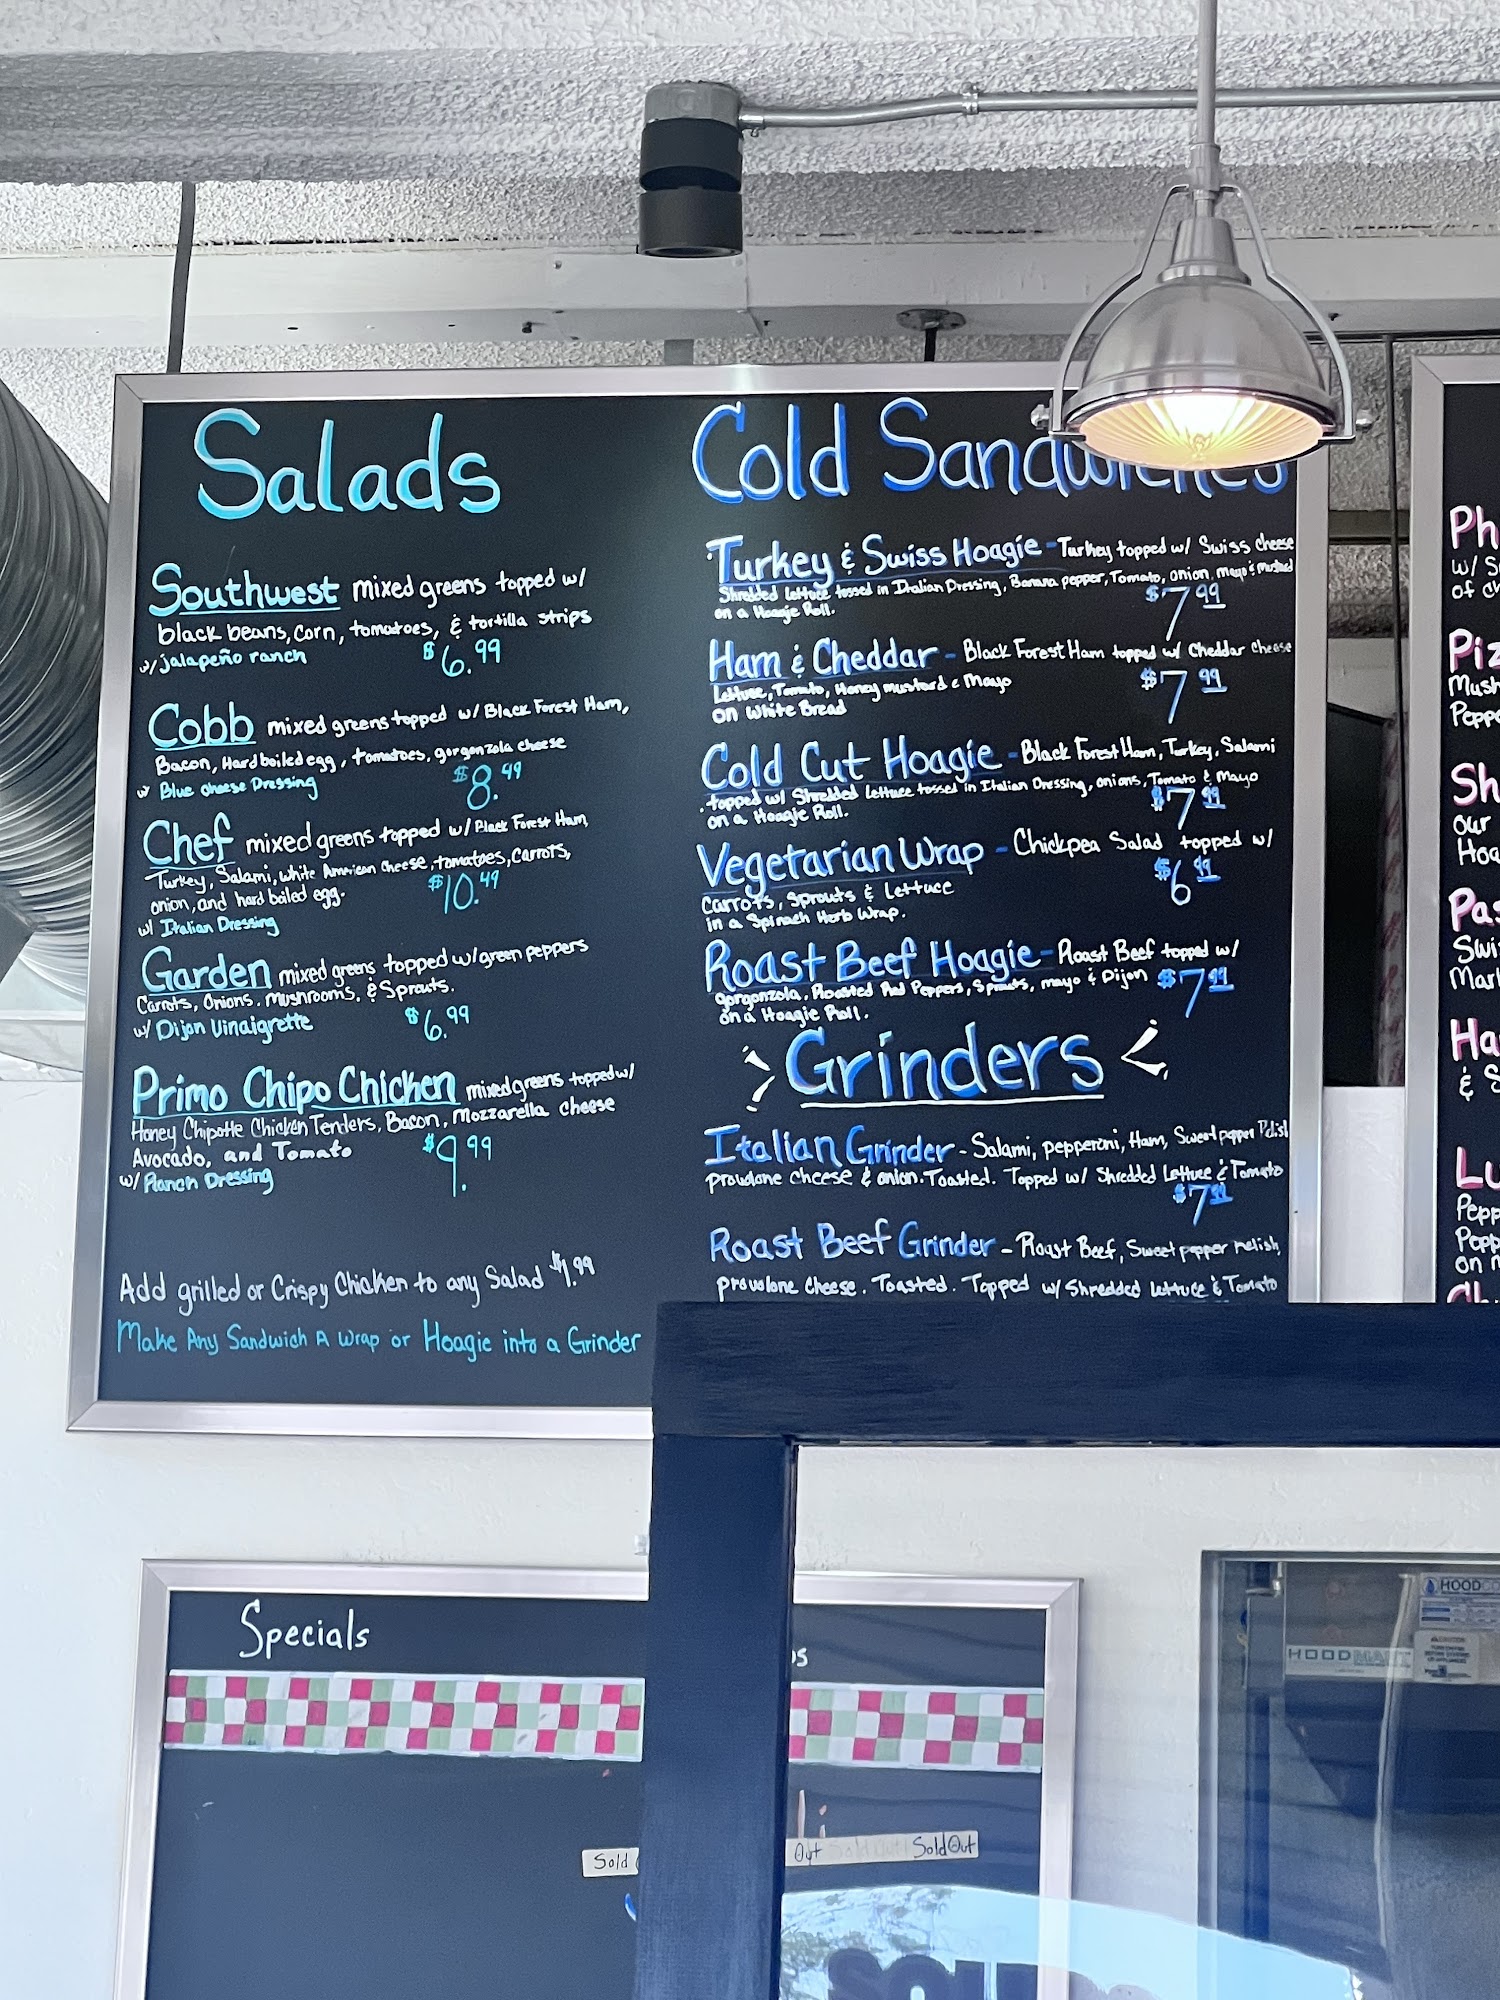 Salads
Southwest mixed greens topped w/
black beans, corn, tomatoes, & tortilla strips
w/ jalapeño ranch $6.99
Cobb mixed greens topped w/ Black Forest Ham,
Bacon, Hard boiled egg, tomatoes, gorgonzola cheese
w/ Blue cheese Dressing $8.49
Chef mixed greens topped w/ Black Forest Ham,
Turkey, Salami, white American cheese, tomatoes, carrots,
onion, and hard boiled egg. $10.49
w/ Italian Dressing
Garden mixed greens topped w/ green peppers
Carrots, Onions, mushrooms, & Sprouts.
w/ Dijon Vinaigrette $6.99
Primo Chipo Chicken mixed greens topped w/
Honey Chipotle Chicken Tenders, Bacon, Mozzarella cheese
Avocado, and Tomato $9.99
w/ Ranch Dressing
Add grilled or Crispy Chicken to any Salad $1.99
Make Any Sandwich A Wrap or Hoagie into a Grinder
Cold Sandwiches
Turkey & Swiss Hoagie - Turkey topped w/ Swiss cheese
Shredded lettuce tossed in Italian Dressing, Banana pepper, Tomato, onion, mayo & mustard
on a Hoagie Roll. $7.99
Ham & Cheddar - Black Forest Ham topped w/ Cheddar cheese
Lettuce, Tomato, Honey mustard & Mayo $7.99
on White Bread
Cold Cut Hoagie - Black Forest Ham, Turkey, Salami
topped w/ Shredded lettuce tossed in Italian Dressing, onions, Tomato & Mayo
on a Hoagie Roll. $7.99
Vegetarian Wrap - Chickpea Salad topped w/
Carrots, Sprouts & Lettuce $6.99
in a Spinach Herb Wrap.
Roast Beef Hoagie - Roast Beef topped w/
gorgonzola, Roasted Red Peppers, Sprouts, mayo & Dijon $7.99
on a Hoagie Roll.
Grinders
Italian Grinder - Salami, pepperoni, Ham, Sweet pepper Relish
provolone cheese & onion. Toasted. Topped w/ Shredded Lettuce & Tomato
$7.99
Roast Beef Grinder - Roast Beef, Sweet pepper relish,
provolone cheese. Toasted. Topped w/ Shredded lettuce & Tomato
Ph
w/ S
of ch
Piz
Mush
Peppe
Sh
our
Hoa
Pas
Swi
Mar
Ha
& S
Lu
Pepp
Pepp
on
Specials
Sold
Out
Sold Out
HOODMART